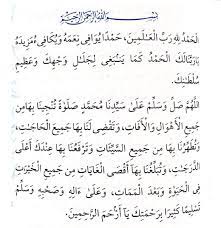 بِسْمِ اللهِ الرَّحْمٰنِ الرَّحِيْمِ
اَلْحَمْدُ لِلّٰهِ رَبِّ الْعَالَمِيْنَ، حَمْدًا يُوَافِيْ نِعَمَهُ وَيُكَافِئُ مَزِيْدَهُ
يَارَبَّنَالَكَ الْحَمْدُ كَمَا يَنْبَغِيْ لِجَلَالِ وَجْهِكَ وَعَظِيْمِ
سُلْطَانِكَ.
اَللّٰهُمَّ صَلِّ وَسَلِّمْ عَلَى سَيِّدِنَا مُحَمَّدٍ صَلَاةً تُنْجِيْنَا بِهَامِنْ
جَمِيْعِ الْأَهْوَالِ وَالْآفَاتِ، وَتَقْضِيْ لَنَا بِهَا جَمِيْعَ الْحَاجَاتِ،
وَتُطَهِّرُنَا بِهَا مِنْ جَمِيْعِ السَّيِّئَاتِ وَتَرْفَعُنَابِهَا عِنْدَكَ أَعْلَى
الدَّرَجَاتِ، وَتُبَلِّغُنَا بِهَا أَقْصَى الْغَايَاتِ مِنْ جَمِيْعِ الْخَيْرَاتِ
فِي الْحَيٰوةِ وَبَعْدَ الْمَمَاتِ، وَعَلَى اٰلِهِ وَصَحْبِهِ وَسَلِّمْ
تَسْلِيْمًا كَثِيْرًا بِرَحْمَتِكَ يَا أَرْحَمَ الرَّاحِمِيْنَ.